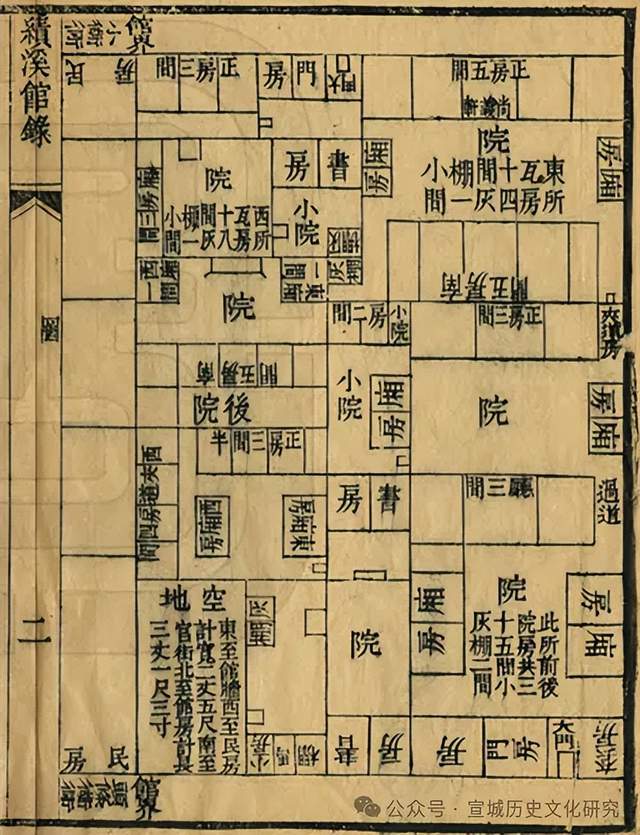 績溪館錄
圖
二
館界
民房
正房三間
門房
大門
正房五間
尚義軒
院
東所瓦房十四間灰棚一小間
廂房
廂房
南房五間
書房
小院
院
西所瓦房十八間灰棚一小間
廂房三間
灰棚
東廂一間
西廂一間
院
南房五間
後院
正房三間半
西廂房
東廂房
房二間
小院
正房三間
夾道房
小院
廂房
院
廂房
書房
廳三間
過道
空地
東至館牆西至民房
計寬二丈五尺南至
官街北至館房計長
三丈一尺三寸
灰棚
院
廂房
院
此所前後
院房共三
十五間小
灰棚二間
廂房
民房
館界
小房
馬棚
書房
房
門房
大門
公众号 · 宣城历史文化研究